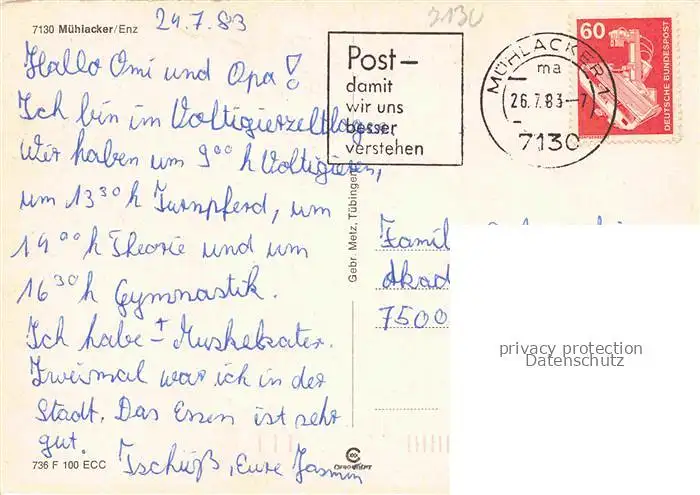 7130 Mühlacker/Enz
24.7.83
3130
Hallo Omi und Opa!
Ich bin im Voltigierzeltlager.
Wir haben um 9⁰⁰ h Voltigieren,
um 13³⁰ h Turnpferd, um
14⁰⁰ h Theorie und um
16³⁰ h Gymnastik.
Ich habe Muskelkater.
Zweimal war ich in der
Stadt. Das Essen ist sehr
gut.
Tschüß, Eure Jasmin
736 F 100 ECC
Gebr. Metz, Tübingen
Post–
damit
wir uns
besser
verstehen
MÜHLACKER 1
ma
26.7.83-7
7130
60
DEUTSCHE BUNDESPOST
Famil
Akad
7500
privacy protection
Datenschutz